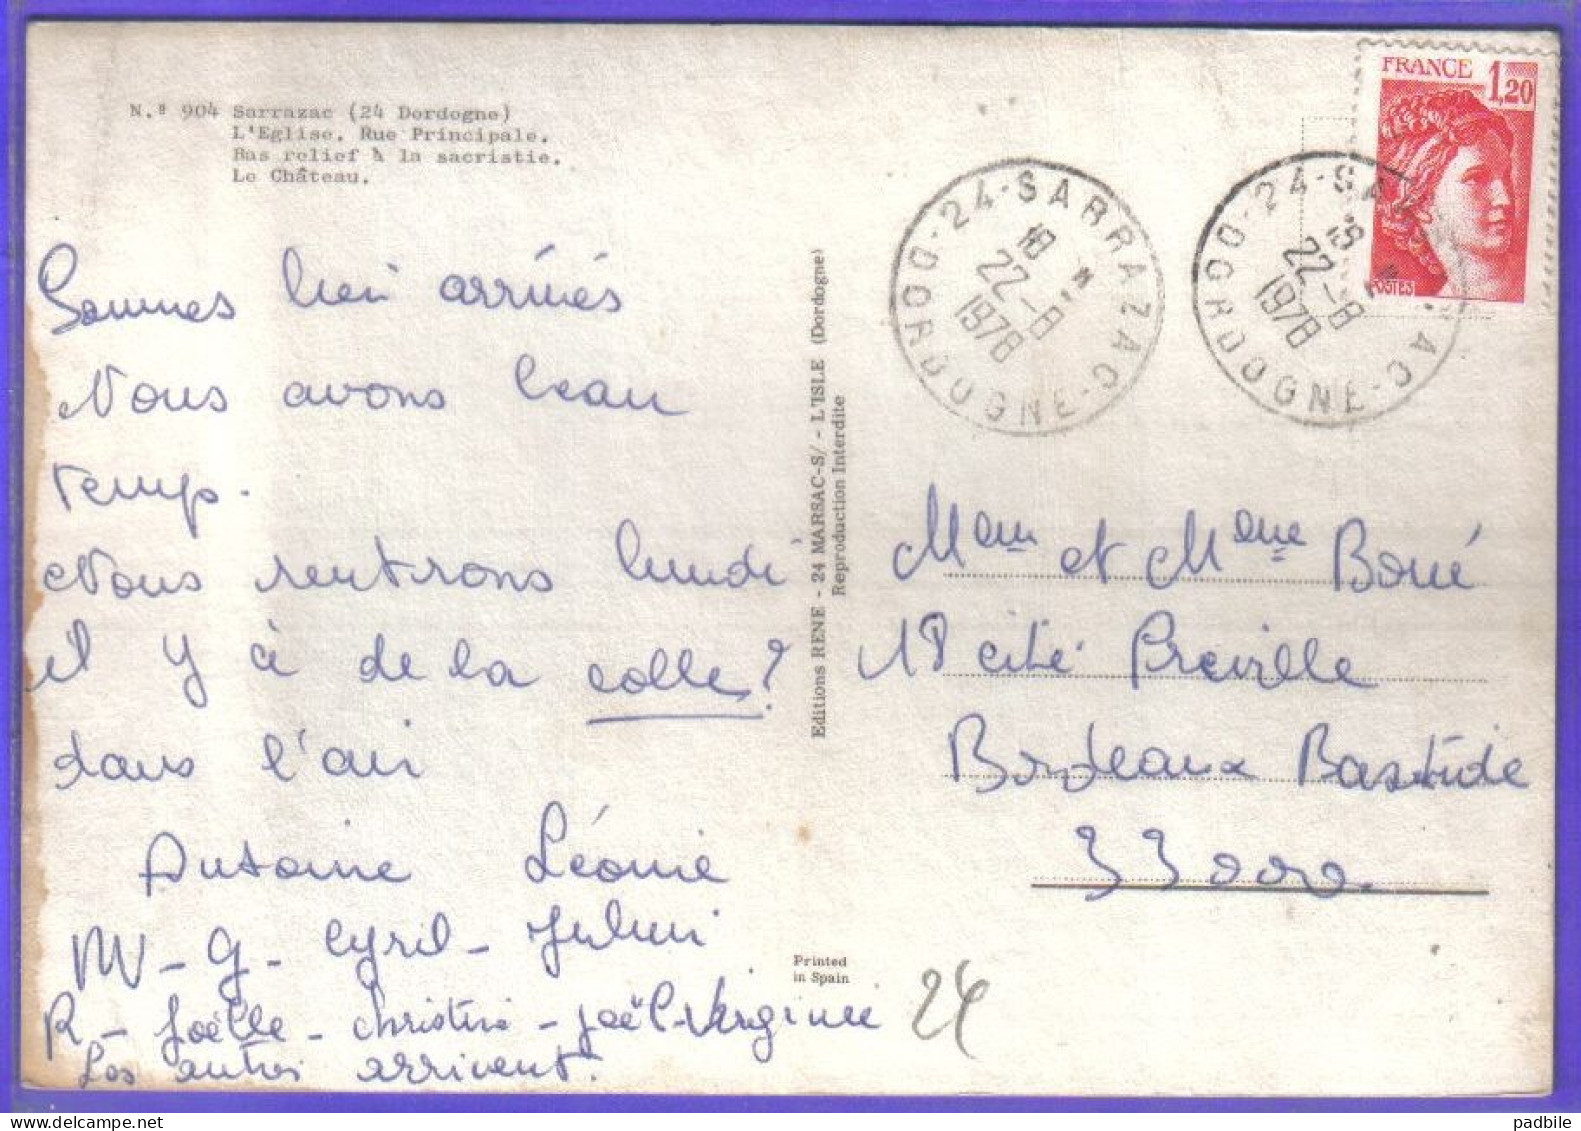 N.º 904 Sarrazac (24 Dordogne)
L'Eglise. Rue Principale.
Bas relief à la sacristie.
Le Château.
FRANCE 1,20
POSTES
24-SARRAZAC-DORDOGNE
18 H
22-8
1978
24-SA AC-DORDOGNE
22-8
1978
Sommes bien arrivés
Nous avons beau
temps.
Nous rentrons lundi
il y à de la colle?
dans l'air
Antoine Léonie
M - g - Cyril - Julien
R - Joëlle - Christine - Joël - Virginie
Les autres arrivent.
Editions RENE - 24 MARSAC-S/ - L'ISLE (Dordogne)
Reproduction Interdite
Printed
in Spain
et Boué
18 cité Preville
Bordeaux Bastide
33000
24
padbile